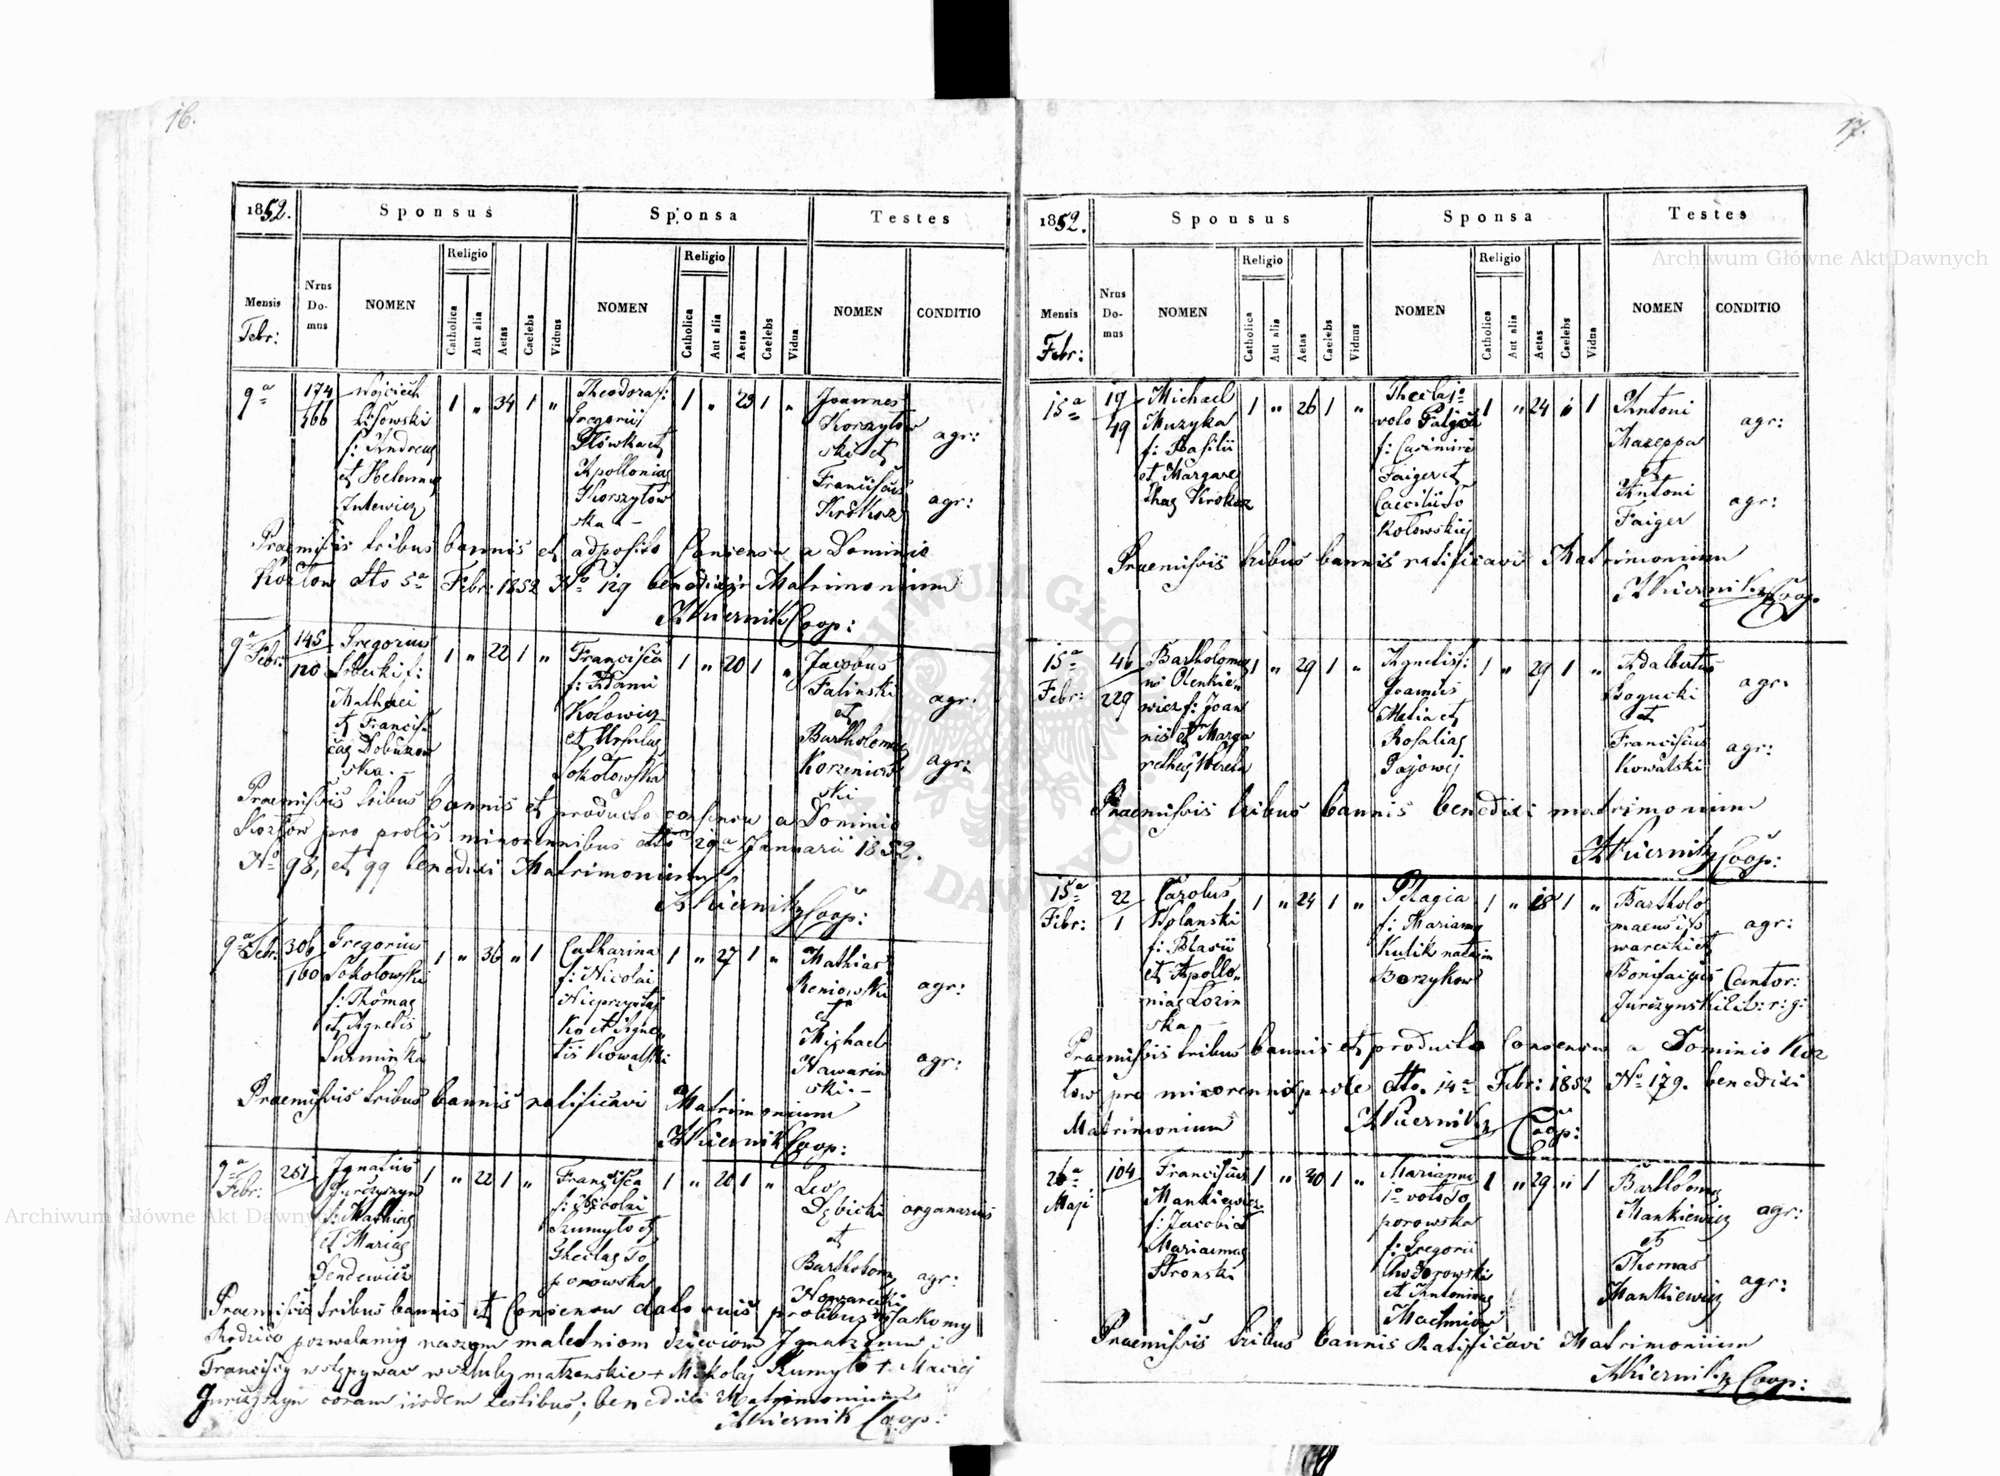 16.
1852.
Sponsus
Sponsa
Testes
Mensis
Febr:
Nrus
Do-
mus
NOMEN
Religio
Catholica
Aut alia
Aetas
Caelebs
Viduus
NOMEN
Religio
Catholica
Aut alia
Aetas
Caelebs
Vidua
NOMEN
CONDITIO
9a
174
166
Wojciech
Lisowski
f: Andreae
et Helenae
1 " 34 1 "
Theodora f:
Gregorii
Główka et
Apolloniae
Korszyłow
ska -
1 " 29 1 "
Joannes
Korszyłow
ski et
Franciscus
agr:
agr:
Praemissis tribus bannis et adposito Consensu a Dominio
Kozłow dto 5a Febr: 1852 No 129 benedixi Matrimonium
Kiernik Coop:
9a
Febr:
145
120
Gregorius
f:
Mathaei
et Francis
cae
ska -
1 " 22 1 "
Francisca
f: Adami
Kołowicz
et Ursulae
Sokołowska
1 " 20 1 "
Jacobus
Falinski
et
Bartholomaeus
Korzeniow
ski
agr:
agr:
Praemissis tribus bannis et producto consensu a Dominio
Kozłow pro prolis minorennibus dto 29a Januarii 1852.
No 98, et 99 benedixi Matrimonium
Kiernik Coop:
9a
Febr:
306
160
Gregorius
Sokołowski
f: Thomae
et Agnetis
Surminska
1 " 36 " 1
Catharina
f: Nicolai
Nieprzyslas
ka et Agne
tis Kowalski
1 " 27 1 "
Mathias
Reniowski
et
Michael
Nawarin
ski -
agr:
agr:
Praemissis tribus bannis ratificavi Matrimonium
Kiernik Coop:
9a
Febr:
251
Ignatius
Jurczyszyn
f: Mathiae
et Mariae
Dendewicz
1 " 22 1 "
Francisca
f: Nicolai
Szumyło et
Theclae To
porowska
1 " 20 1 "
Leo
Dębicki
et
Bartholom
organarius
agr:
Praemissis tribus bannis et Consensu dato suis prolibus Jakomy
Rodzice pozwalamy naszym małetniom dzieciom Ignatzemu i
Francisy wstępywac w szluby małzenskie + Mikołaj Szumyło + Maciej
Jurczyszyn coram iisdem testibus, benedixi Matrimonium
Kiernik Coop:
17.
1852.
Sponsus
Sponsa
Testes
Mensis
Febr:
Nrus
Do-
mus
NOMEN
Religio
Catholica
Aut alia
Aetas
Caelebs
Viduus
NOMEN
Religio
Catholica
Aut alia
Aetas
Caelebs
Vidua
NOMEN
CONDITIO
15a
19
49
Michael
Muzyka
f: Basilii
et Margare
thae
1 " 26 1 "
Thecla 1o
voto
f: Casimiri
Faiger et
Caeciliae So
kołowskiej
1 " 24 " 1
Antoni
Mazeppa
et
Antoni
Faiger
agr:
agr:
Praemissis tribus bannis ratificavi Matrimonium
Kiernik Coop.
15a
Febr:
46
229
Bartholomae
us Olenkie
wicz f: Joan
nis et Marga
rethae
1 " 29 1 "
Agnetis f:
Joannis
Melia et
Rosaliae
1 " 29 1 "
Adalbertus
Bogucki
et
Franciscus
Kowalski
agr:
agr:
Praemissis tribus bannis benedixi matrimonium
Kiernik Coop:
15a
Febr:
22
1
Carolus
Wolanski
f: Blasii
et Apollo
niae Lozin
ska
1 " 24 1 "
Pelagia
f: Mariannae
Kulik natam
Borzykow
1 " 18 1 "
Bartholo
maeus
et
Bonifacius
Jurczynski
agr:
Cantor:
Praemissis tribus bannis et producto Consensu a Dominio Koz
łow pro minorennis prole dto. 14a Febr: 1852 No 179. benedixi
Matrimonium
Kiernik Coop:
26a
Maji
104
Franciscus
Mankiewicz
f: Jacobi et
Mariannae
Stronski
1 " 40 1 "
Marianna
1o voto To
porowska
f: Gregorii
Chodorowski
et Antoninae
1 " 29 " 1
Bartholomae
Mankiewicz
et
Thomas
Mankiewicz
agr:
agr:
Praemissis tribus bannis Ratificavi Matrimonium
Kiernik Coop:
Archiwum Główne Akt Dawnych
Archiwum Główne Akt Dawnych
ARCHIWUM GŁÓWNE AKT DAWNYCH